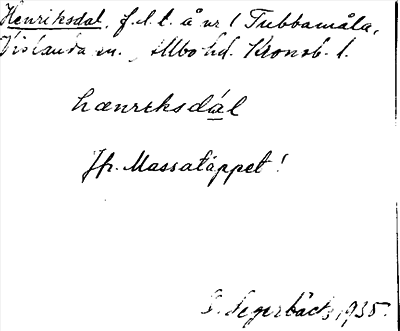 Henriksdal, f.d.t. å nr 1 Tubbamåla,
Vislanda sn., Allbo hd. Kronob. l.
hænreksdál
Jfr. Massatäppet!
G. Segerbäck, 1935.